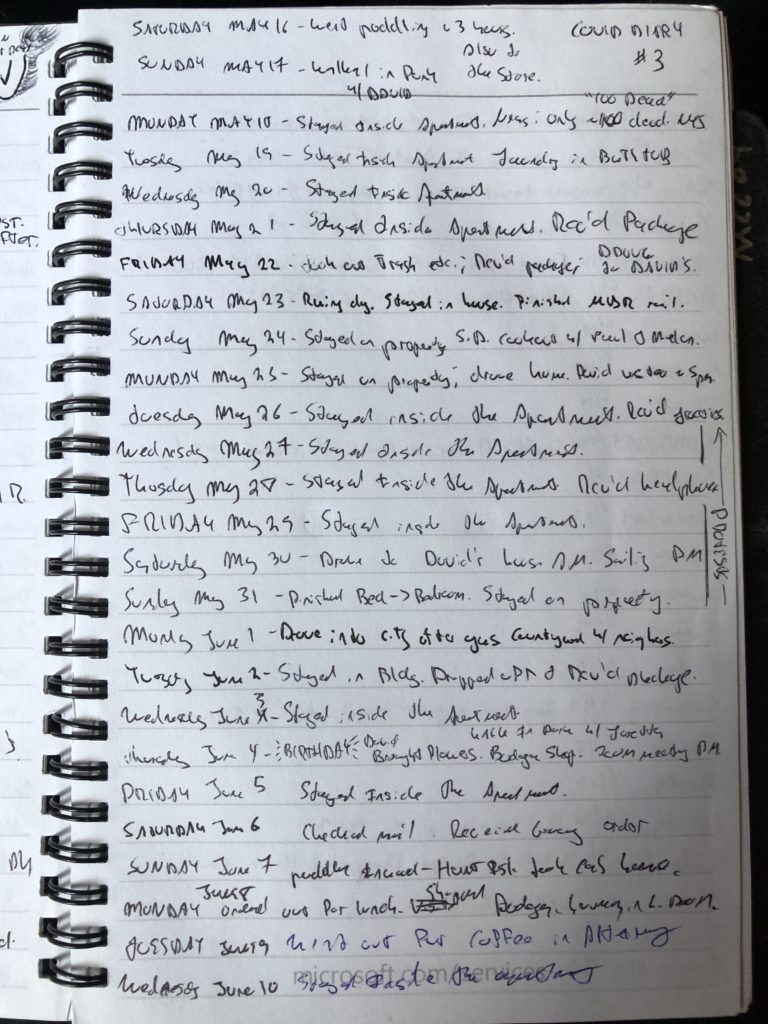 COVID DIARY
#3
SATURDAY MAY 16 - Went paddling ~3 hours. Also to the Store.
SUNDAY MAY 17 - Walked in Park w/ DAVID
"100 Dead"
MONDAY MAY 18 - Stayed Inside Apartment. News: only ~100 dead. NYS
Tuesday May 19 - Stayed Inside Apartment Laundry in BATHTUB
Wednesday May 20 - Stayed Inside Apartment
THURSDAY May 21 - Stayed Inside Apartment. Rec'd Package
FRIDAY May 22 - Took out Trash etc.; Rec'd package; DROVE to DAVID'S.
SATURDAY May 23 - Rainy day. Stayed in house. Finished mail.
Sunday May 24 - Stayed on property S.D. cookout w/ Paul &
MONDAY May 25 - Stayed on property; drove home. David
Tuesday May 26 - Stayed inside the Apartment. Rec'd
Wednesday May 27 - Stayed Inside the Apartment.
Thursday May 28 - Stayed Inside the Apartment Rec'd headphones
FRIDAY May 29 - Stayed inside the Apartment.
Saturday May 30 - Drove to David's house AM. Sailing PM
Sunday May 31 - Finished Bed -> Bedroom. Stayed on property.
PROTESTS
Monday June 1 - Drove into city after gas Courtyard w/ neighbors.
Tuesday June 2 - Stayed in Bldg. Dropped off & Rec'd Package.
Wednesday June 3 - Stayed inside the Apartment
walk in Park w/
Thursday June 4 - BIRTHDAY David Brought Flowers. Bodega Shop. Zoom meeting PM
FRIDAY June 5 Stayed Inside the Apartment.
SATURDAY June 6 Checked mail. Received Grocery order
SUNDAY June 7 paddled took cab home.
MONDAY June 8 ordered out for lunch. Shopped Bodega.
TUESDAY June 9 Went out for coffee in
Wednesday June 10 Stayed Inside the apartment
microsoft.com/services